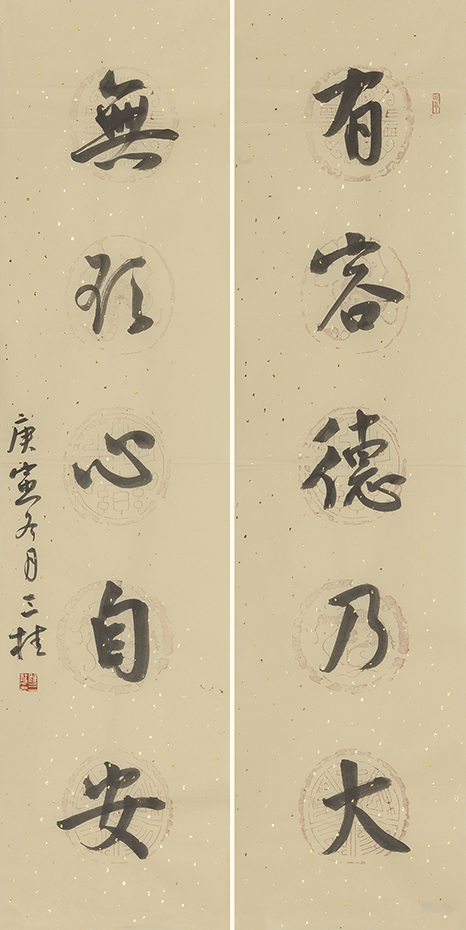 有容德乃大
無欺心自安
庚寅冬月三桂